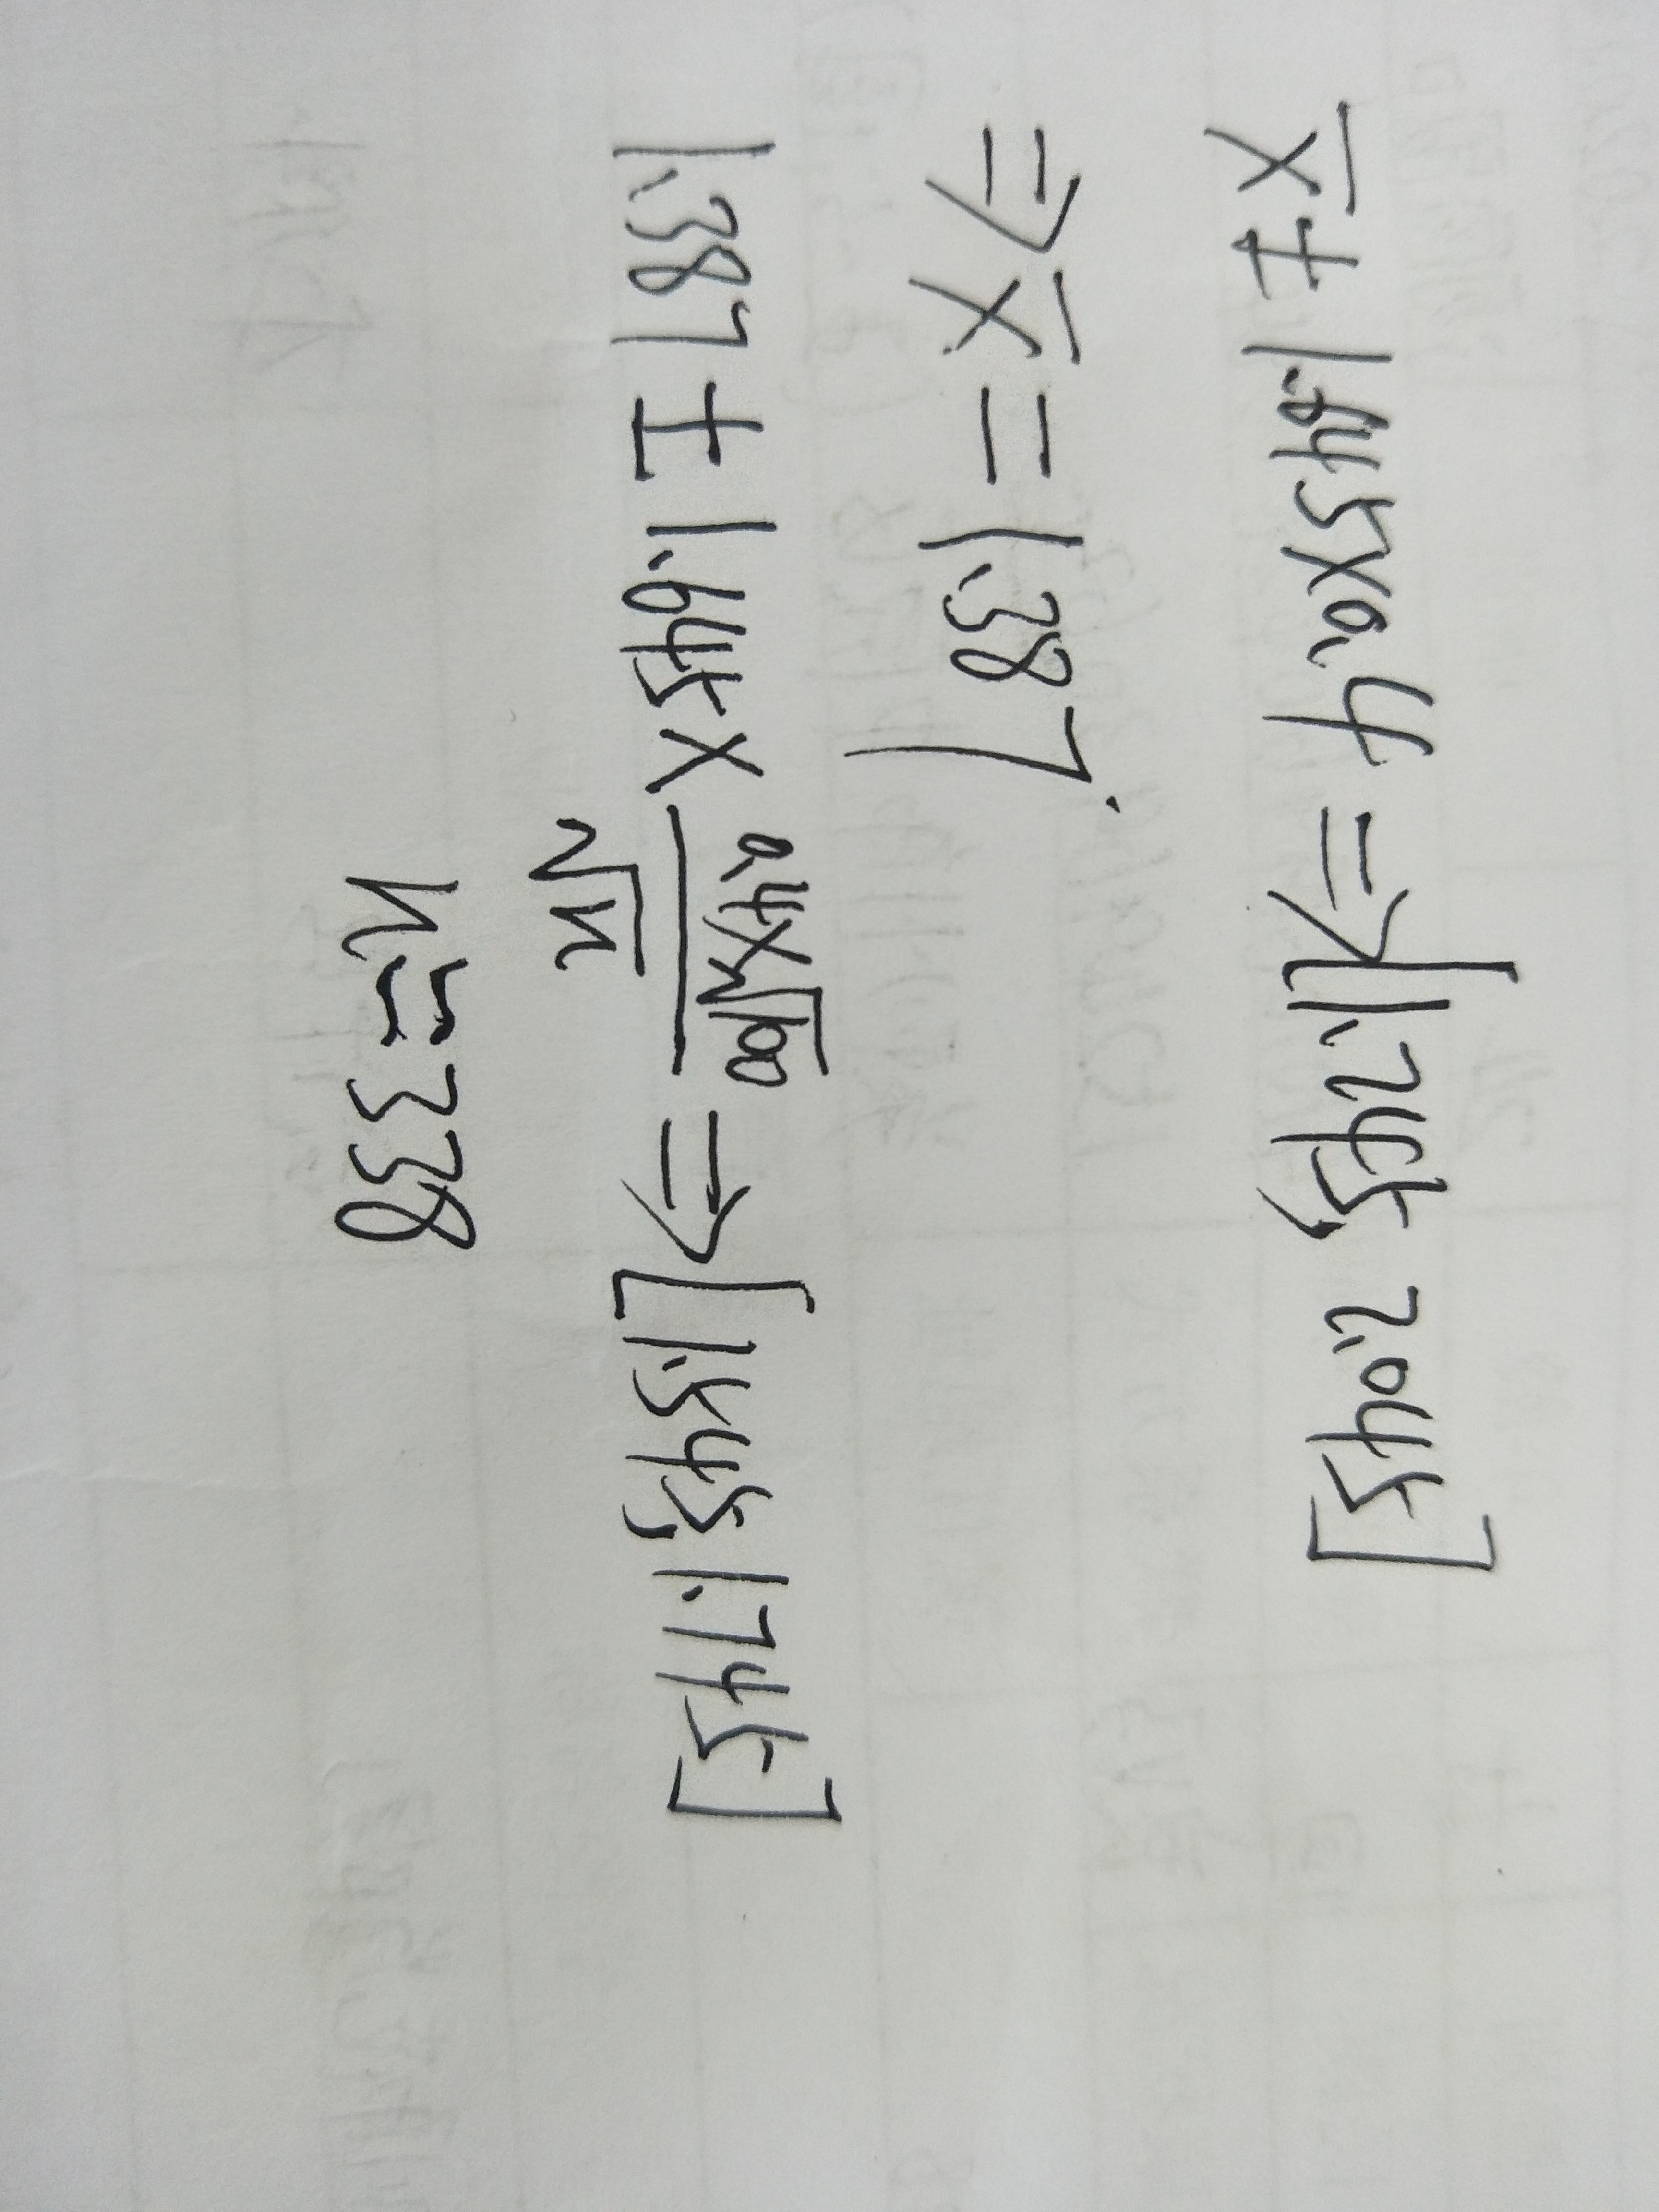 X̄ ± 1.645×0.4 ⇒ [1.245, 2.045]
⇒ X̄ = 1.387.
1.387 ± 1.645× \frac{0.4×√100}{√n} ⇒ [1.545, 1.745]
n ≈ 338